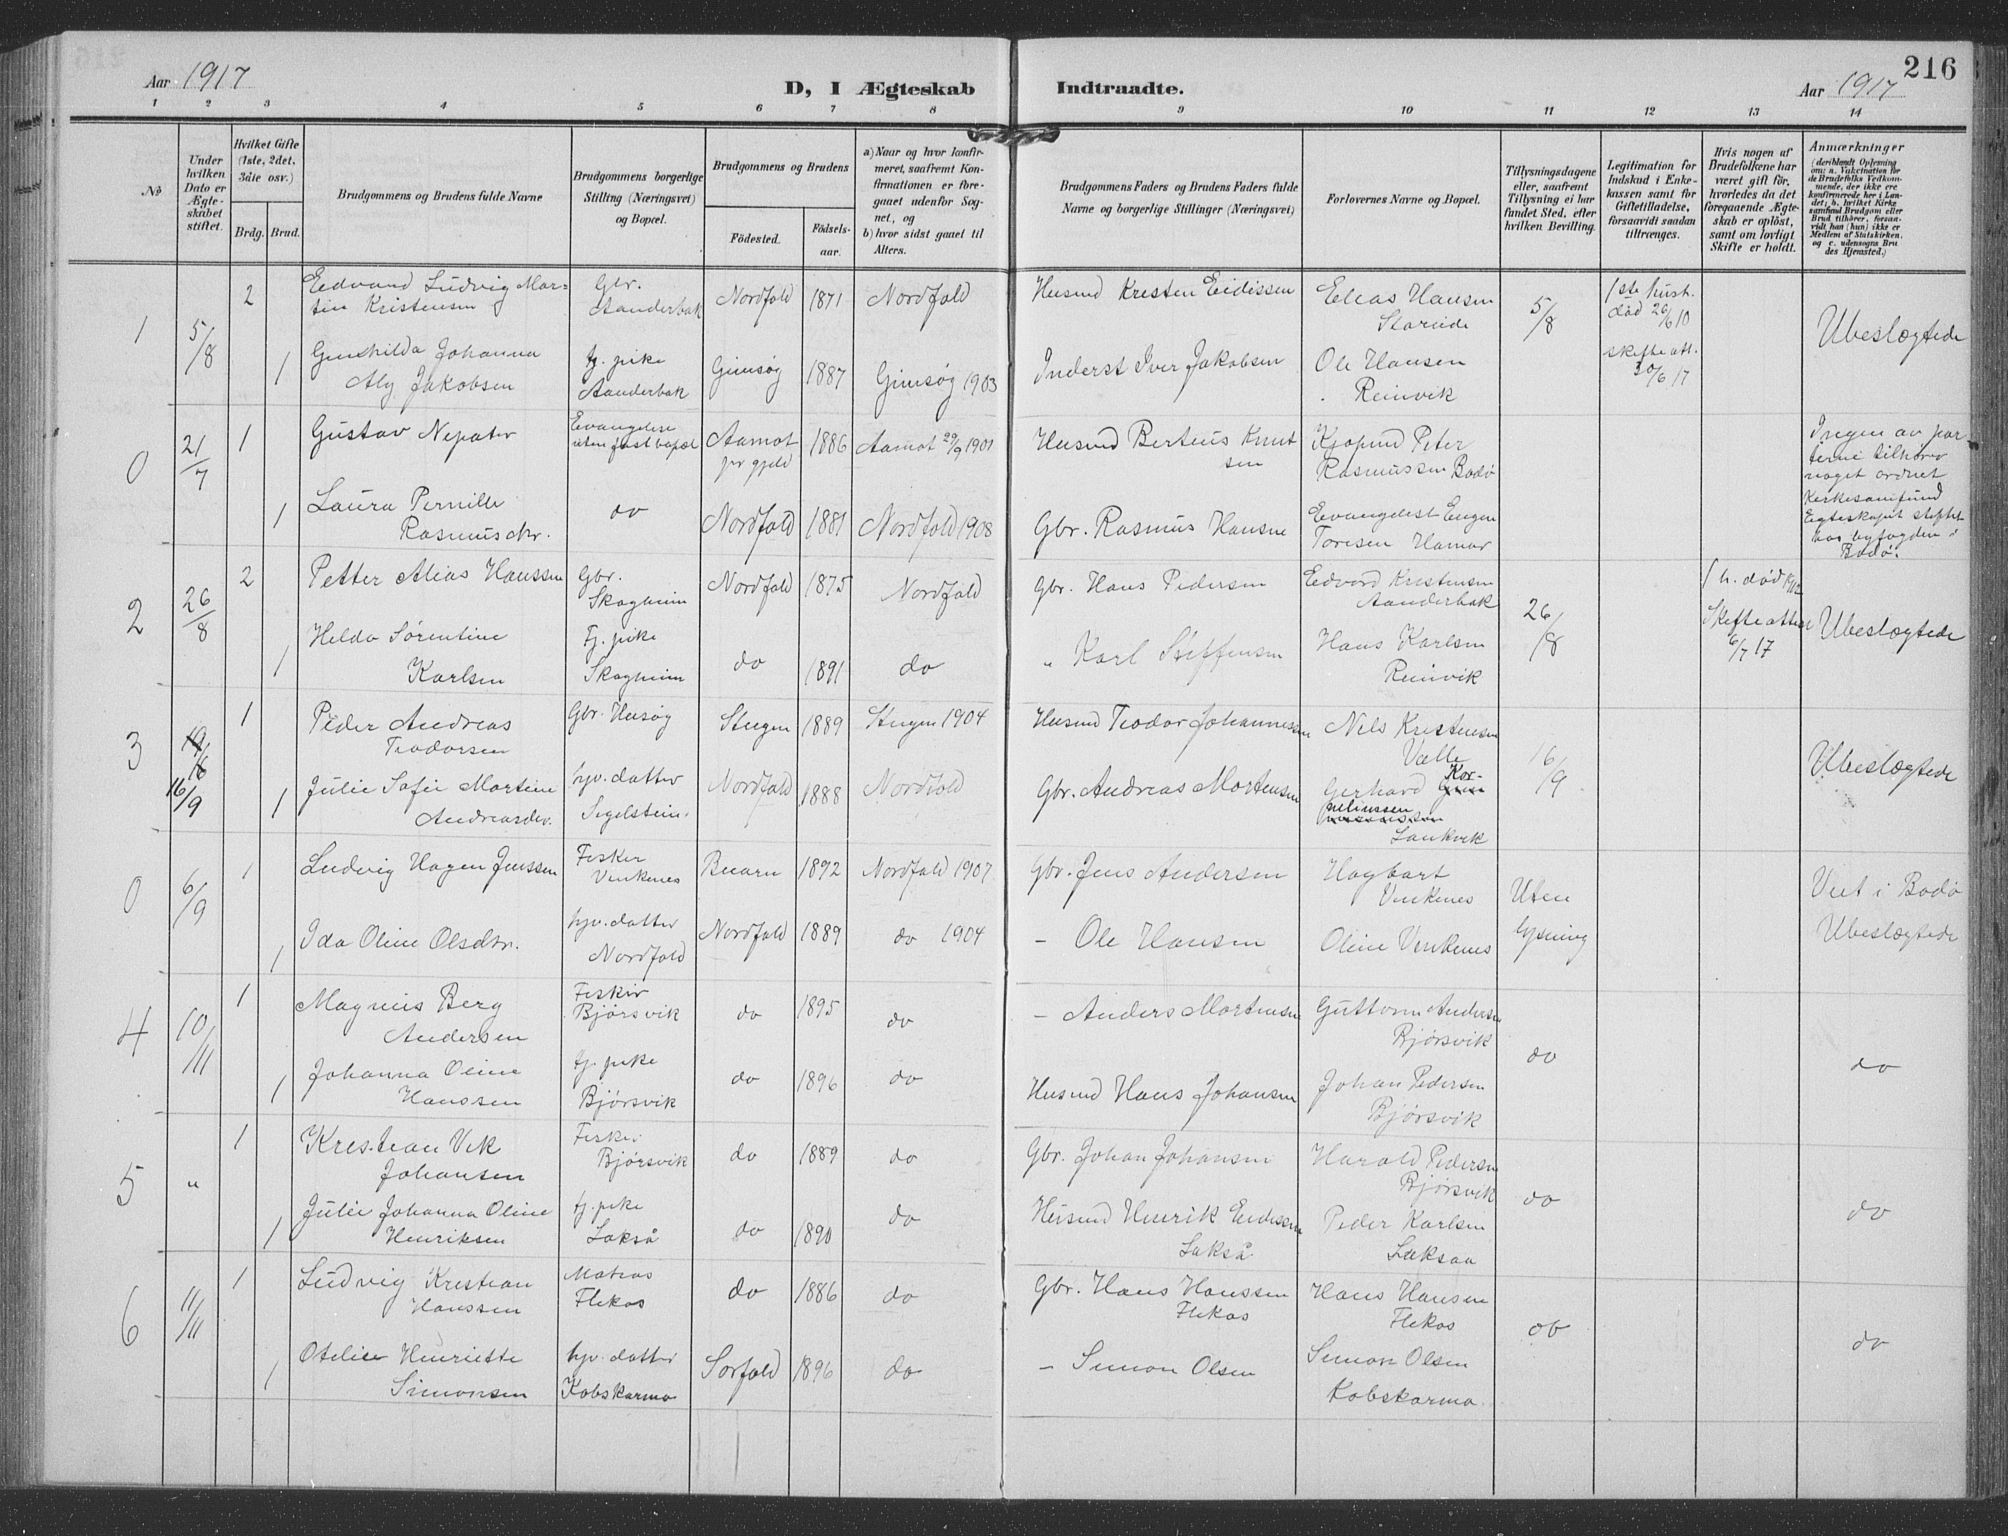 216
Aar 1917
D, I Ægteskab Indtraadte.
Aar 1917
1 2 3 4 5 6 7 8 9 10 11 12 13 14
No
Under hvilken Dato er Ægteskabet stiftet.
Hvilket Gifte (1ste, 2det, 3die osv.)
Brdg. Brud.
Brudgommens og Brudens fulde Navne
Brudgommens borgerlige Stilling (Næringsvei) og Bopæl.
Brudgommens og Brudens
Fødested.
Fødselsaar.
a) Naar og hvor konfirmeret, saafremt Konfirmationen er foregaaet udenfor Sognet, og
b) hvor sidst gaaet til Alters.
Brudgommens Faders og Brudens Faders fulde Navne og borgerlige Stillinger (Næringsvei)
Forlovernes Navne og Bopæl.
Tillysningsdagene eller, saafremt Tillysning ei har fundet Sted, efter hvilken Bevilling.
Legitimation for Indskud i Enkekassen samt for Giftetilladelse, forsaavidt saadan tiltrænges.
Hvis nogen af Brudefolkene har været gift før, hvorledes da det foregaaende Ægteskab er opløst, samt om lovligt Skifte er holdt.
Anmærkninger
(deriblandt Oplysning om: a. Vakcination for de Brudefolks Vedkommende, der ikke ere konfirmerede her i Landet; b. hvilket Kirkesamfund Brudgom eller Brud tilhører, forsaavidt han (hun) ikke er Medlem af Statskirken, og c. udensogns Brudes Hjemsted.)
1 5/8 2 Edvard Ludvig Martin Kristensen Gbr. Aanderbak Nordfold 1871 Nordfold Husmd Kristen Eidissen Elias Hansen 5/8 1ste hust. død 26/6 10 Ubeslægtede
1 Gunhilda Johanna Aly Jakobsen tj. pike Aanderbak Gimsøy 1887 Gimsøy 1903 Inderst Iver Jakobsen Ole Hansen Reinvik skifteatt. 30/6 17
0 21/7 1 Gustav Nepater Evangelist uten fast bopæl Aamot pr gjeld 1886 Aamot 29/9 1901 Husmd Bertius Knutsen Kjøpmd Peter Rasmussen Bodø Ingen av parterne tilhører noget ordnet kirkesamfund Egteskapet stiftet hos byfogden i Bodø.
1 Laura Pernille Rasmusdtr. do Nordfold 1881 Nordfold 1908 Gbr. Rasmus Hansen Evangelist Eugen Toresen Hamar
2 26/8 2 Petter Alias Hanssen Gbr. Skogheim Nordfold 1875 Nordfold Gbr. Hans Pedersen Edvard Kristensen Aanderbak 26/8 1 h. død Ubeslægtede
1 Helda Sørentine Karlsen Tj. pike Skogheim do 1891 do " Karl Steffensen Hans Karlsen Reinvik Skifteattest 6/7 17
3 16/9 1 Peder Andreas Teodorsen Gbr. Husøy Steigen 1889 Steigen 1904 Husmd Teodor Johannessen Nils Kristensen Valle 16/9 Ubeslægtede
1 Julie Sofie Martine Andreasdtr. hjv. datter Segelstein. Nordfold 1888 Nordfold Gbr. Andreas Mortensen Gerhard Kornelinssen Lankvik
0 6/9 1 Ludvig Hagen Jenssen Fisker Vinkenes Beiarn 1892 Nordfold 1907 Gbr. Jens Andersen Hagbart Vinkenes Uten lysning Viet i Bodø Ubeslægtede
1 Ida Oline Olsdtr. hjv. datter Nordfold Nordfold 1889 do 1904 - Ole Hansen Oline Vinkenes
4 10/11 1 Magnus Berg Andersen Fisker Bjørsvik do 1895 do - Anders Mortensen Guttorm Andersen Bjørsvik do do
1 Johanna Oline Hanssen tj. pike Bjørsvik do 1896 do Husmd Hans Johansen Johan Pedersen Bjørsvik
5 " 1 Kristian Vik Johansen Fisker Bjørsvik do 1889 do Gbr. Johan Johansen Harald Pedersen Bjørsvik do do
1 Julie Johanna Oline Henriksen tj. pike Lakså do 1890 do Husmd Henrik Eidissen Lakså Peder Karlsen Laksaa
6 11/11 1 Ludvig Kristian Hanssen Matros Flekos do 1886 do Gbr. Hans Hanssen Flekos Hans Hansen Flekos do do
1 Otelie Henriette Simonsen hjv. datter Kobskarmo Sørfold 1896 do - Simon Olsen Simon Olsen Kobskarmo